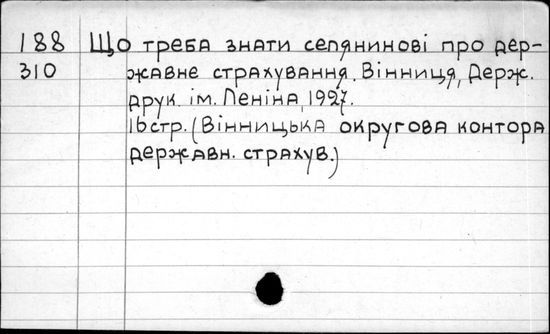 188 Що треба знати селянинові про дер-
310 жавне страхування. Вінниця, Держ.
друк. ім. Леніна, 1927.
16 стр. (Вінницька округова контора
державн. страхув.)